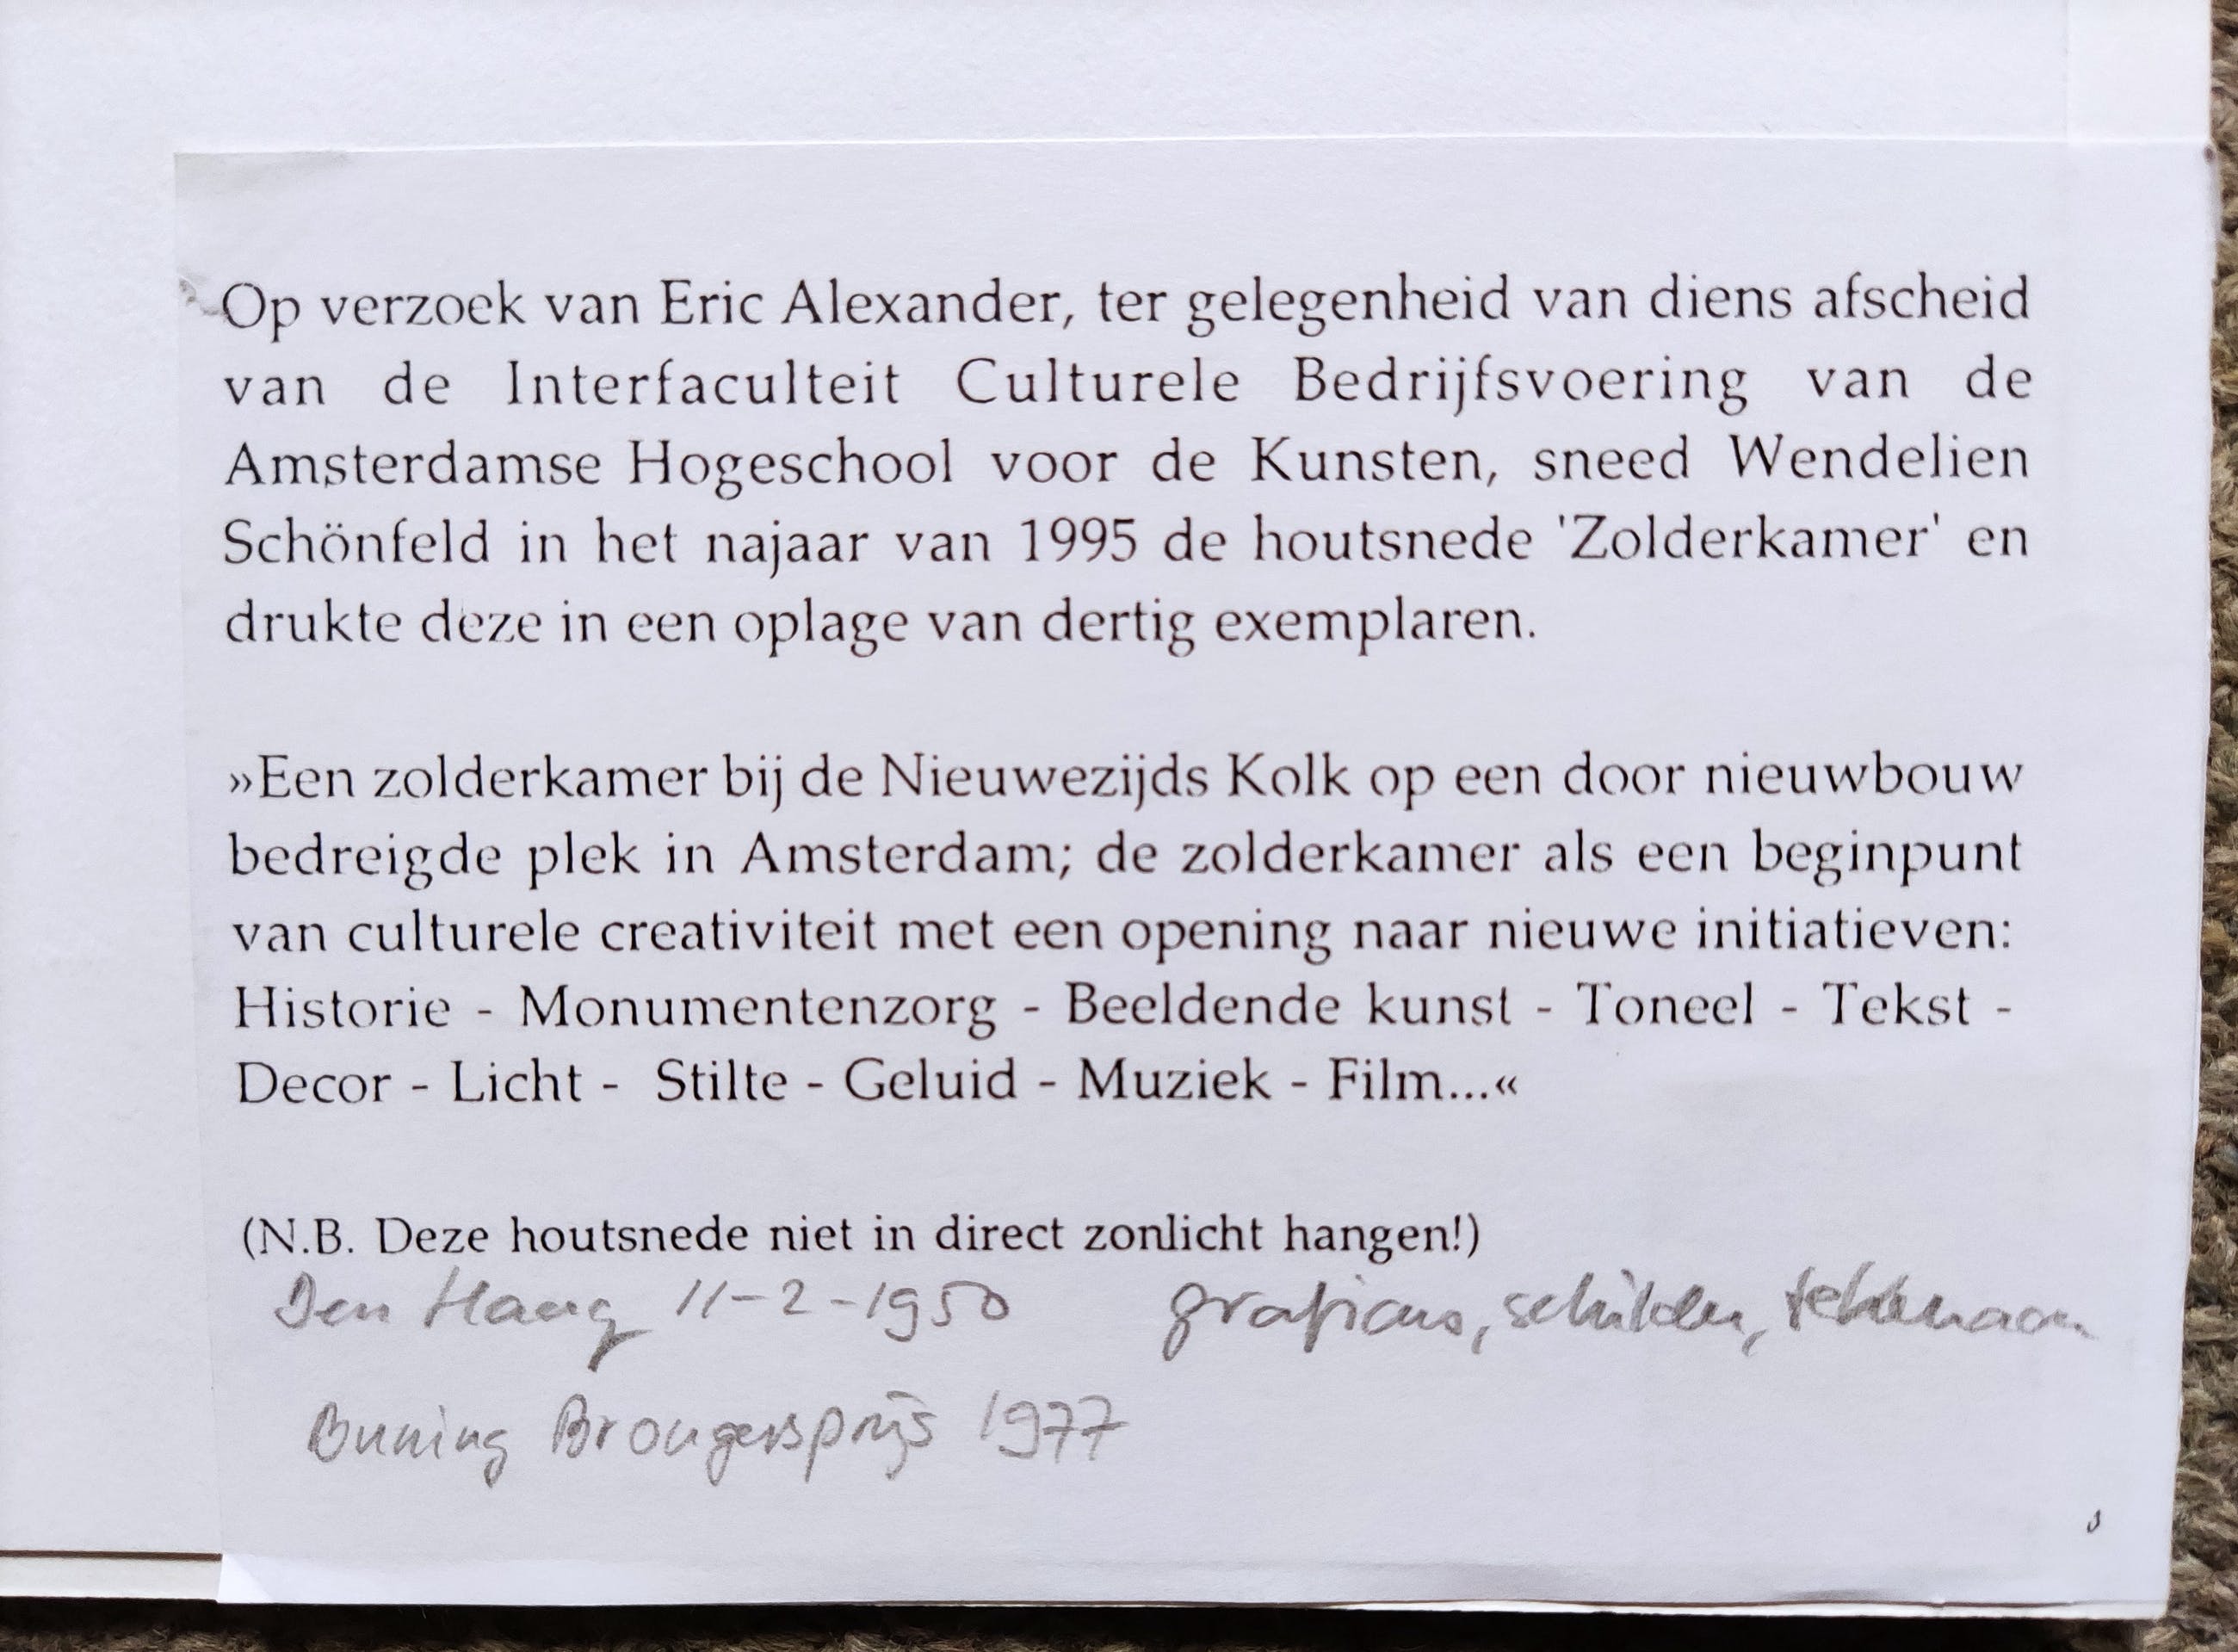 Op verzoek van Eric Alexander, ter gelegenheid van diens afscheid
van de Interfaculteit Culturele Bedrijfsvoering van de
Amsterdamse Hogeschool voor de Kunsten, sneed Wendelien
Schönfeld in het najaar van 1995 de houtsnede 'Zolderkamer' en
drukte deze in een oplage van dertig exemplaren.
»Een zolderkamer bij de Nieuwezijds Kolk op een door nieuwbouw
bedreigde plek in Amsterdam; de zolderkamer als een beginpunt
van culturele creativiteit met een opening naar nieuwe initiatieven:
Historie - Monumentenzorg - Beeldende kunst - Toneel - Tekst -
Decor - Licht - Stilte - Geluid - Muziek - Film...«
(N.B. Deze houtsnede niet in direct zonlicht hangen!)
Den Haag 11-2-1950 graficus, schilder, tekenaar
Buning Brongersprijs 1977